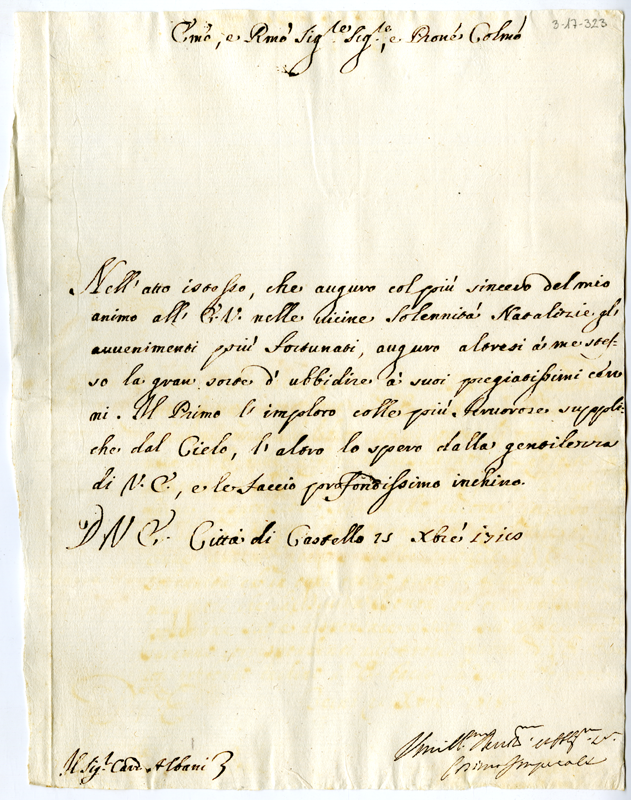 3-17-323
Emo, e Rmo Sigre Sigre, e Prone Colmo
Nell' atto istesso, che auguro col più sincero del mio
animo all' E. V. nelle vicine Solennità Natalizie gl'
avvenimenti più fortunati, auguro altresì à me stes-
so la gran sorte d' ubbidire à suoi pregiatissimi cen
ni. Il Primo l' imploro colle più fervorose suppli-
che dal Cielo, l' altro lo spero dalla gentilezza
di V. E., e le faccio profondissimo inchino.
D V E. Città di Castello 15 Xbre
Il Sigr Card. Albani